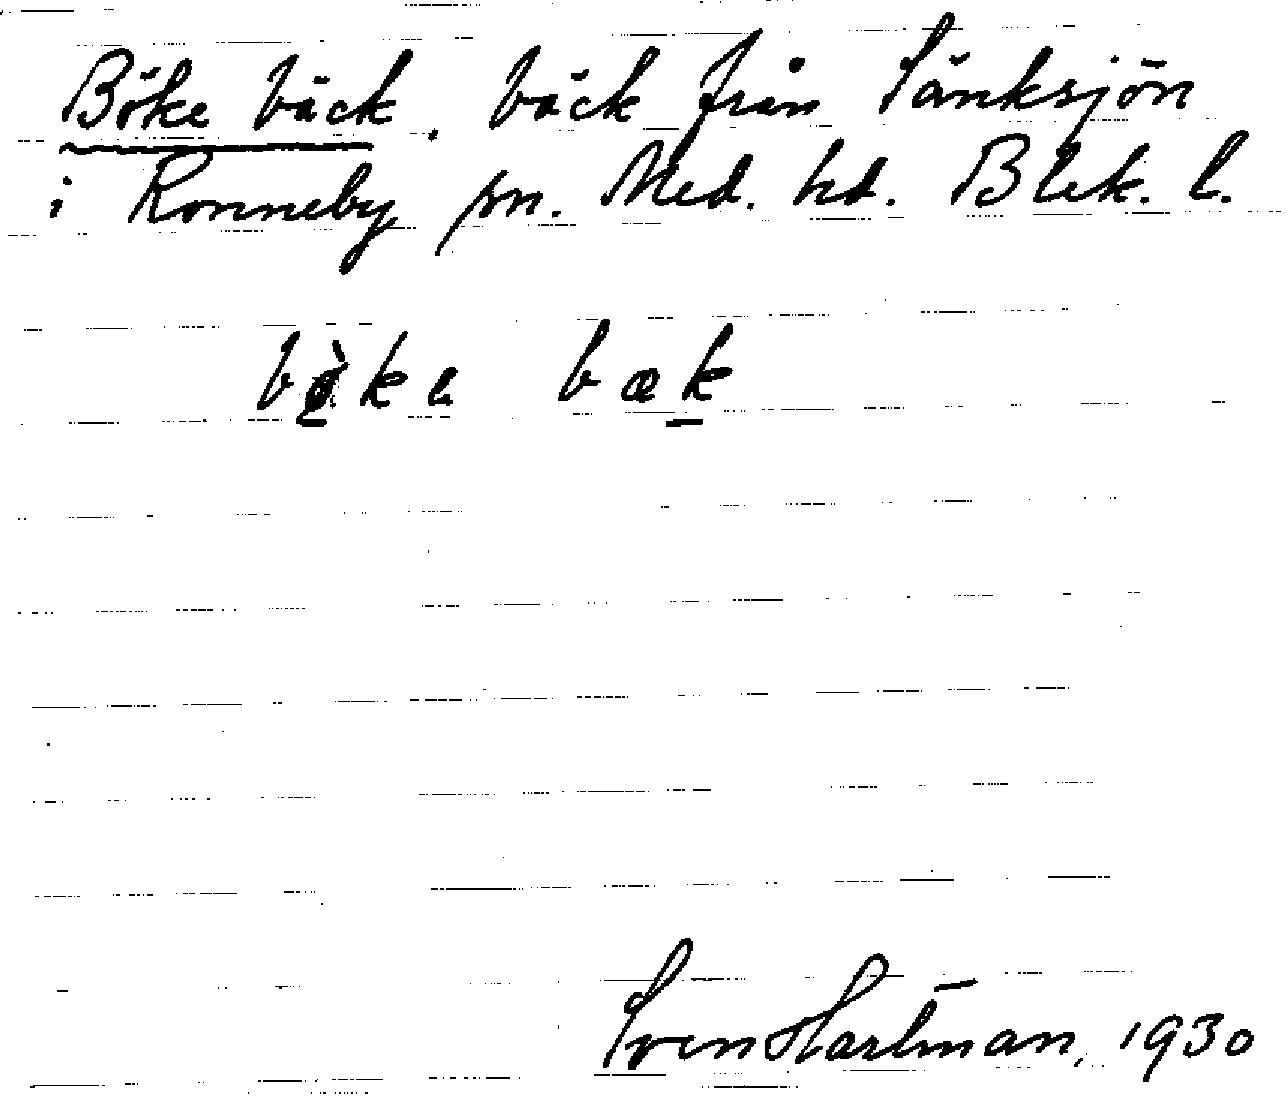 Böke bäck. bäck från Sänksjön
i Ronneby sn. Med. hd. Blek. l.
bø̀ke bæk
Sven Hartman, 1930